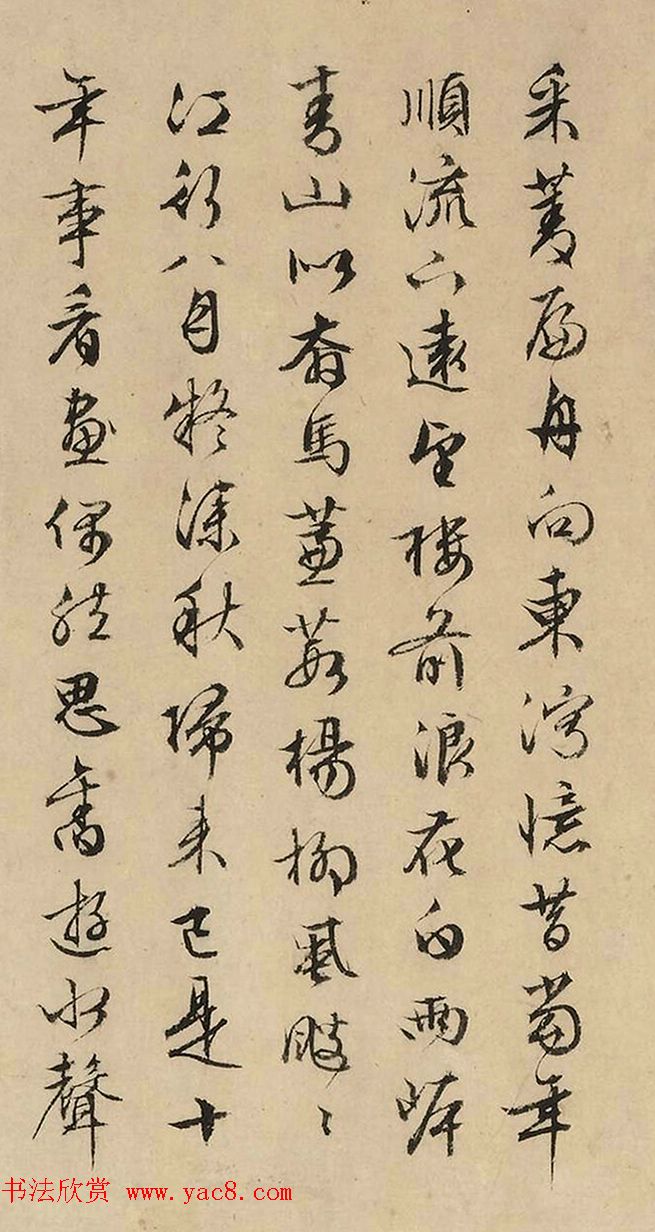 采菱扁舟向東灣憶昔當年
順流下遠望樓前浪花白兩岸
青山似奔馬蘆荻楊柳風颼〻
江行八月疑深秋歸來已是十
年事看畫偶然思舊遊水聲
书法欣赏 www.yac8.com